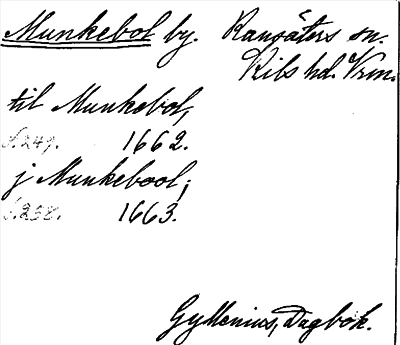 Munkebol by. Ransäters sn.
Kils hd. Vrm.
til Munkebol,
S. 249. 1662.
j Munkebool;
S. 258. 1663.
Gyllenius, Dagbok.